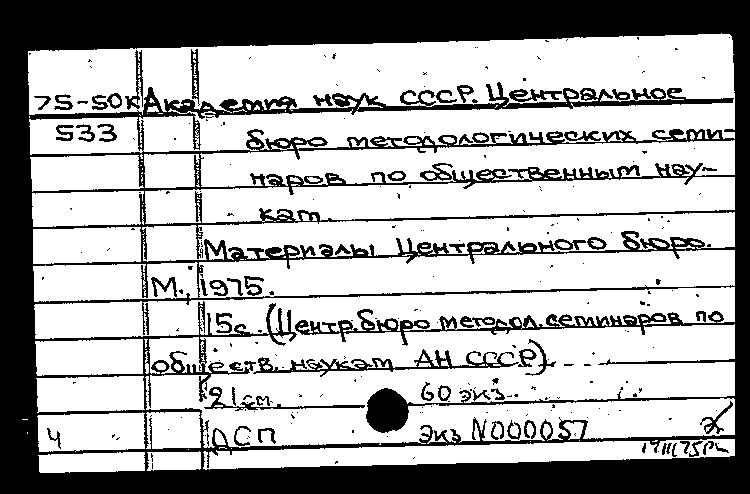 75-50к Академия наук СССР. Центральное
533 бюро методологических семи-
наров по общественным нау-
кам.
Материалы Центрального бюро.
М., 1975.
15с. (Центр. бюро методол. семинаров по
обществ. наукам АН СССР).
21см. 60 экз.
4 ДСП Экз N000057